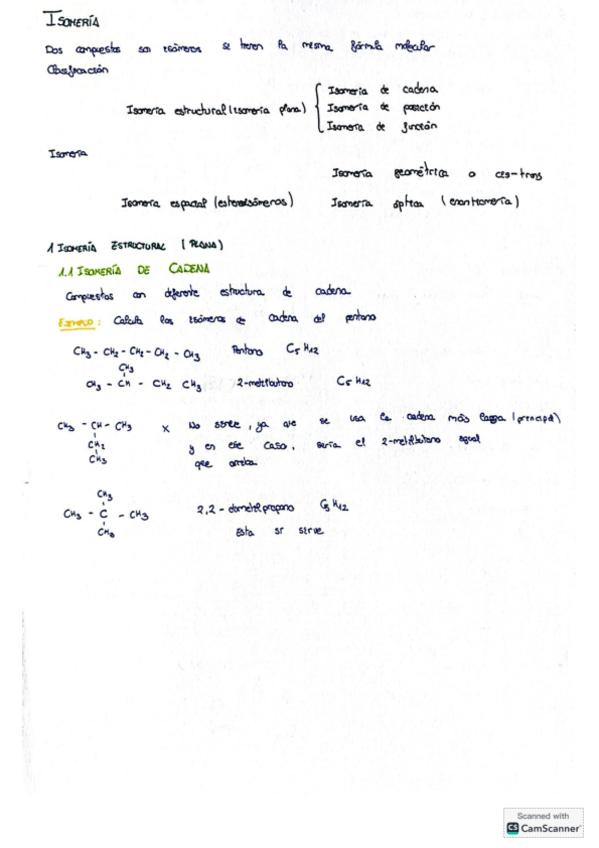 ISOMERÍA
Dos compuestos son isómeros si tienen la misma fórmula molecular
Clasificación
Isomería de cadena
Isomería estructural (isomería plana) Isomería de posición
Isomería de función
Isomería
Isomería geométrica o cis-trans
Isomería espacial (estereoisómeros) Isomería óptica (enantiomería)
1 ISOMERÍA ESTRUCTURAL (PLANA)
1.1 ISOMERÍA DE CADENA
Compuestos con diferente estructura de cadena
EJEMPLO: Calcula los isómeros de cadena del pentano
CH3 - CH2 - CH2 - CH2 - CH3 Pentano C5H12
CH3
CH3 - CH - CH2 CH3 2-metilbutano C5H12
CH3 - CH - CH3 x No sirve, ya que se usa la cadena más larga (principal)
CH2 y en ese caso, sería el 2-metilbutano igual
CH3 que arriba
CH3
CH3 - C - CH3 2,2-dimetilpropano C5H12
CH3 Esta sí sirve
Scanned with
CS CamScanner